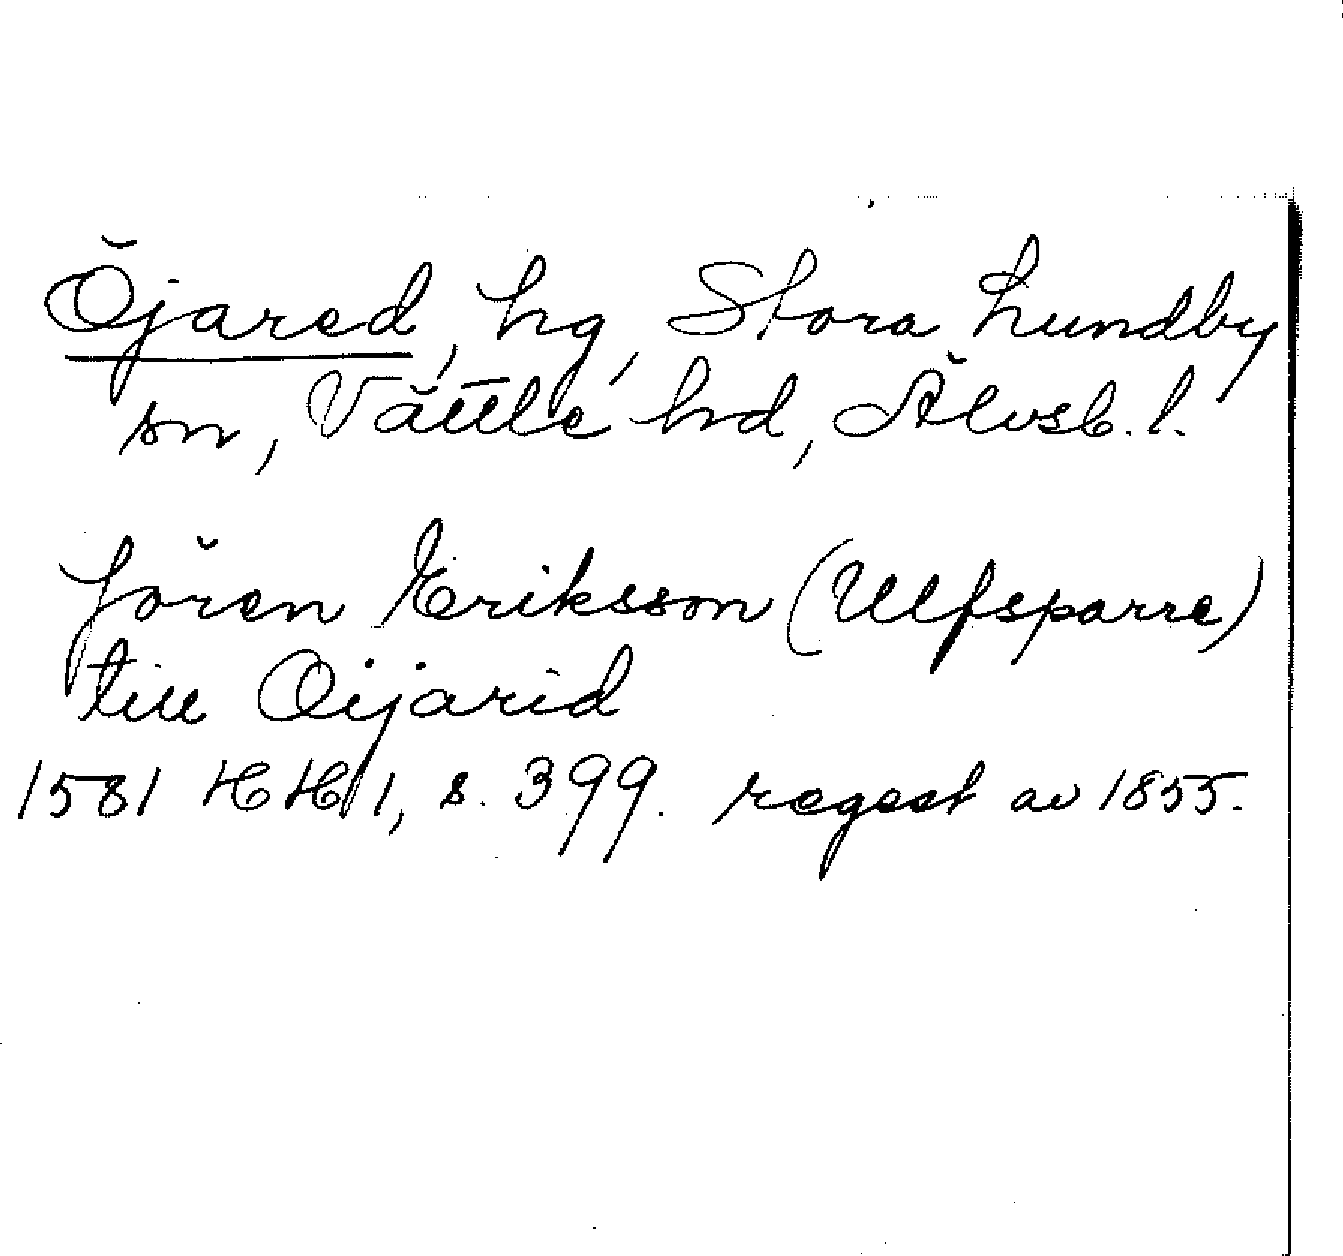 Öjared, hg, Stora Lundby
sn, Vättle hd, Älvsb. l.
Jören Eriksson (Ulfsparre)
till Oijarid
1581 HH 1, s. 399. regest av 1855.